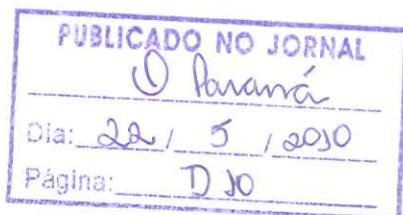 PUBLICADO NO JORNAL
O Paraná
Dia: 22 / 5 / 2010
Página: D 10